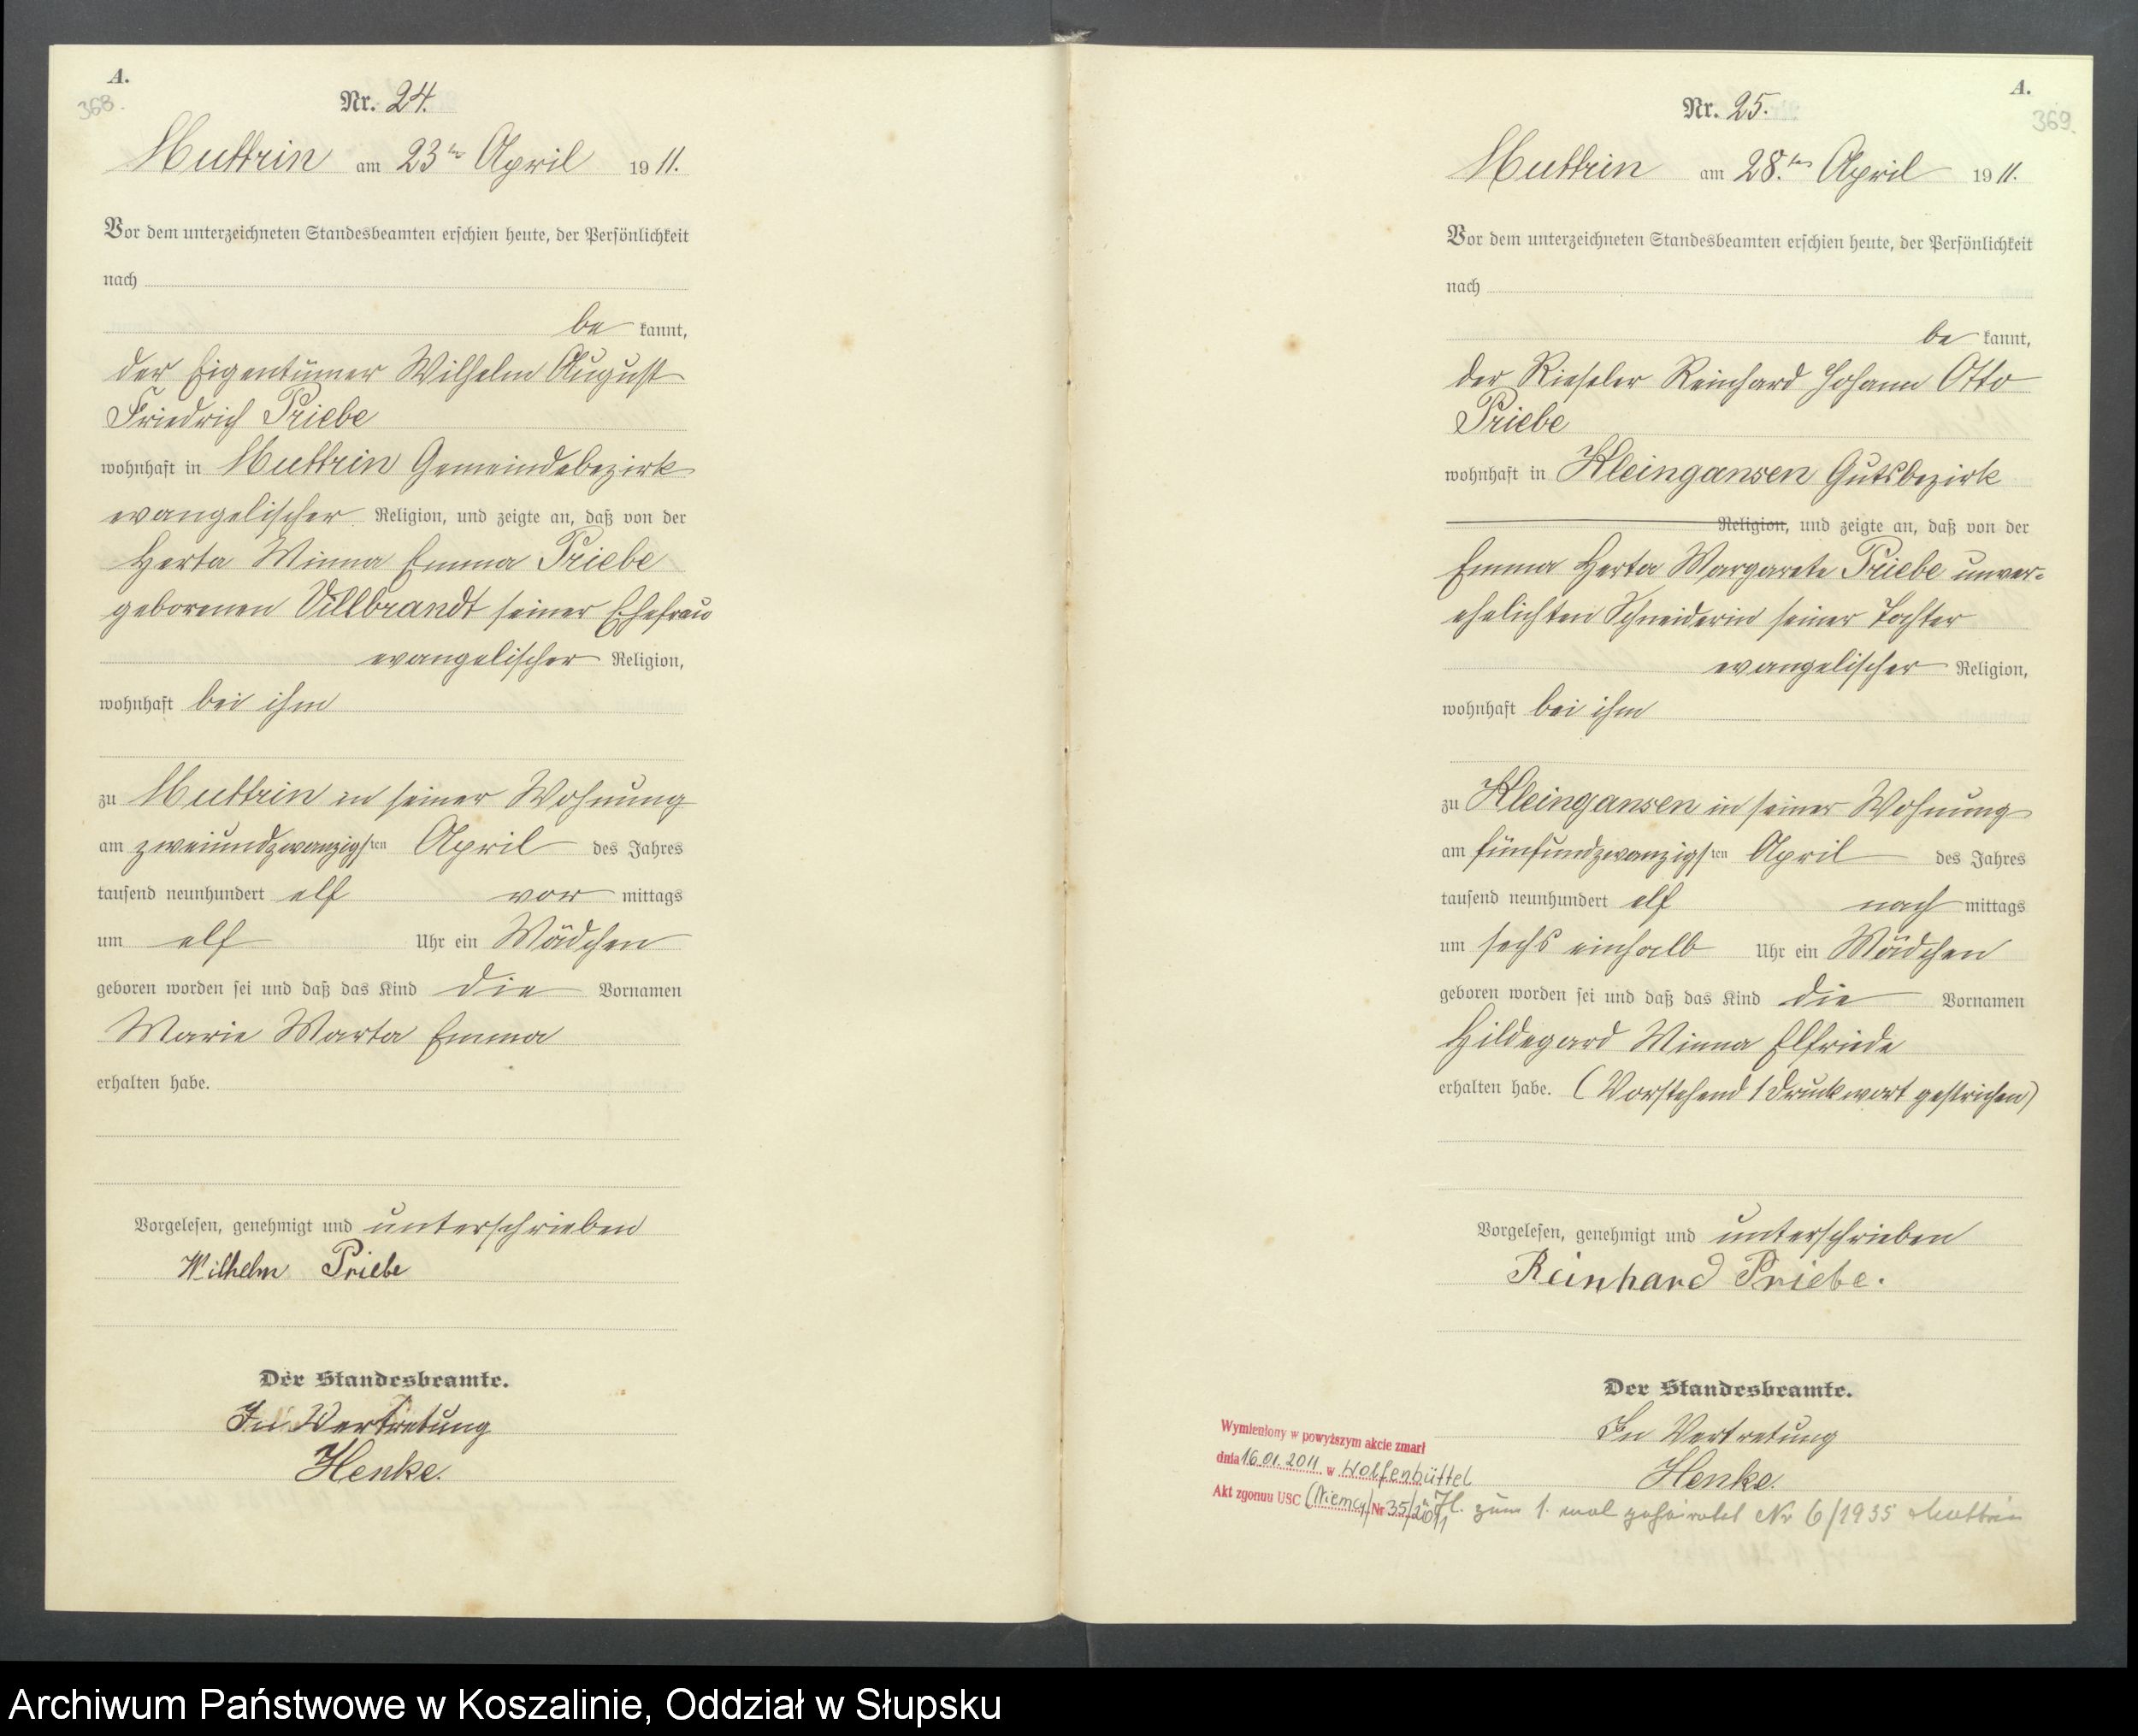 A.
368.
Nr. 24.
Muttrin am 23ten April 1911.
Vor dem unterzeichneten Standesbeamten erschien heute, der Persönlichkeit
nach
be kannt,
der Eigentümer Wilhelm August
Friedrich Priebe
wohnhaft in Muttrin Gemeindebezirk
evangelischer Religion, und zeigte an, daß von der
Herta Minna Emma Priebe
geborenen Villbrandt seiner Ehefrau
evangelischer Religion,
wohnhaft bei ihm
zu Muttrin in seiner Wohnung
am zweiundzwanzigsten April des Jahres
tausend neunhundert elf vor mittags
um elf Uhr ein Mädchen
geboren worden sei und daß das Kind die Vornamen
Marie Marta Emma
erhalten habe.
Vorgelesen, genehmigt und unterschrieben
Wilhelm Priebe
Der Standesbeamte.
In Vertretung
Henke.
A.
369.
Nr. 25.
Muttrin am 28.ten April 1911.
Vor dem unterzeichneten Standesbeamten erschien heute, der Persönlichkeit
nach
be kannt,
der Rieseler Reinhard Johann Otto
Priebe
wohnhaft in Kleingansen Gutsbezirk
Religion, und zeigte an, daß von der
Emma Herta Margarete Priebe unver-
ehelichten Schneiderin seiner Tochter
evangelischer Religion,
wohnhaft bei ihm
zu Kleingansen in seiner Wohnung
am fünfundzwanzigsten April des Jahres
tausend neunhundert elf nach mittags
um sechs einhalb Uhr ein Mädchen
geboren worden sei und daß das Kind die Vornamen
Hildegard Minna Elfriede
erhalten habe. (Vorstehend 1 Druckwort gestrichen)
Vorgelesen, genehmigt und unterschrieben
Reinhard Priebe.
Der Standesbeamte.
In Vertretung
Henke.
Wymieniony w powyższym akcie zmarł
dnia 16.01.2011 w Wolfenbüttel
Akt zgonu USC (Niemcy) Nr 35/2011
H. zum 1. mal geheiratet Nr 6/1935 Muttrin
Archiwum Państwowe w Koszalinie, Oddział w Słupsku